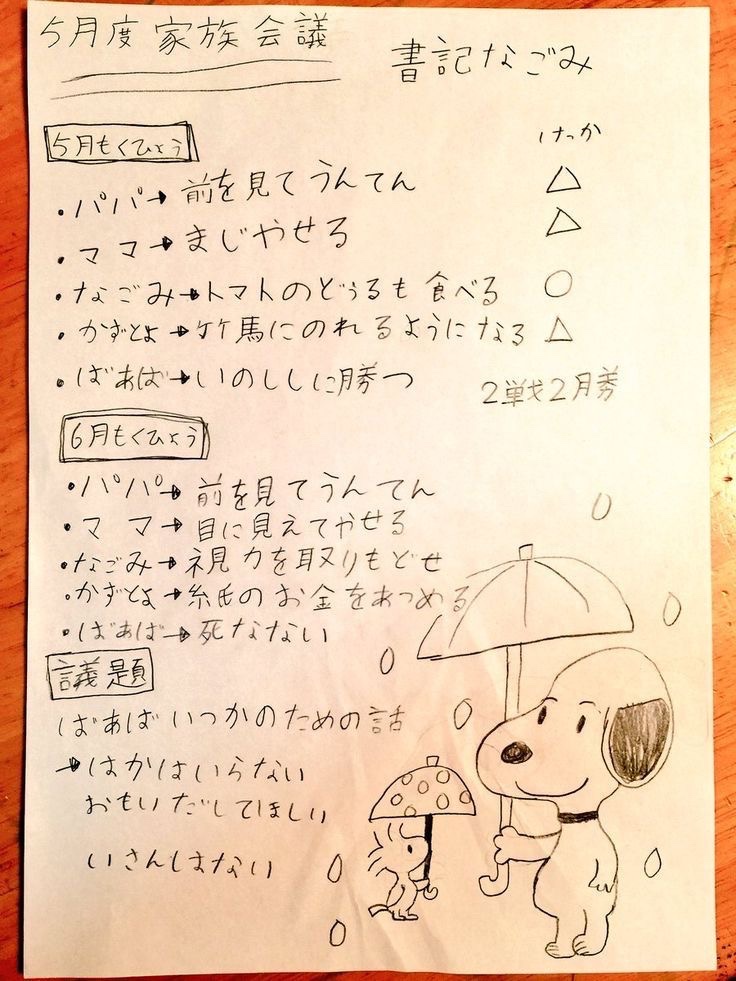 5月度 家族会議
書記なごみ
5月もくひょう
けっか
・パパ→前を見てうんてん △
・ママ→まじやせる △
・なごみ→トマトのどぅるも食べる ○
・かずとよ→竹馬にのれるようになる △
・ばあば→いのししに勝つ 2戦2月券
6月もくひょう
・パパ→前を見てうんてん
・ママ→目に見えてやせる
・なごみ→視力を取りもどせ
・かずとよ→紙のお金をあつめる
・ばあば→死なない
議題
ばあばいつかのための話
→はかはいらない
おもいだしてほしい
いさんはない